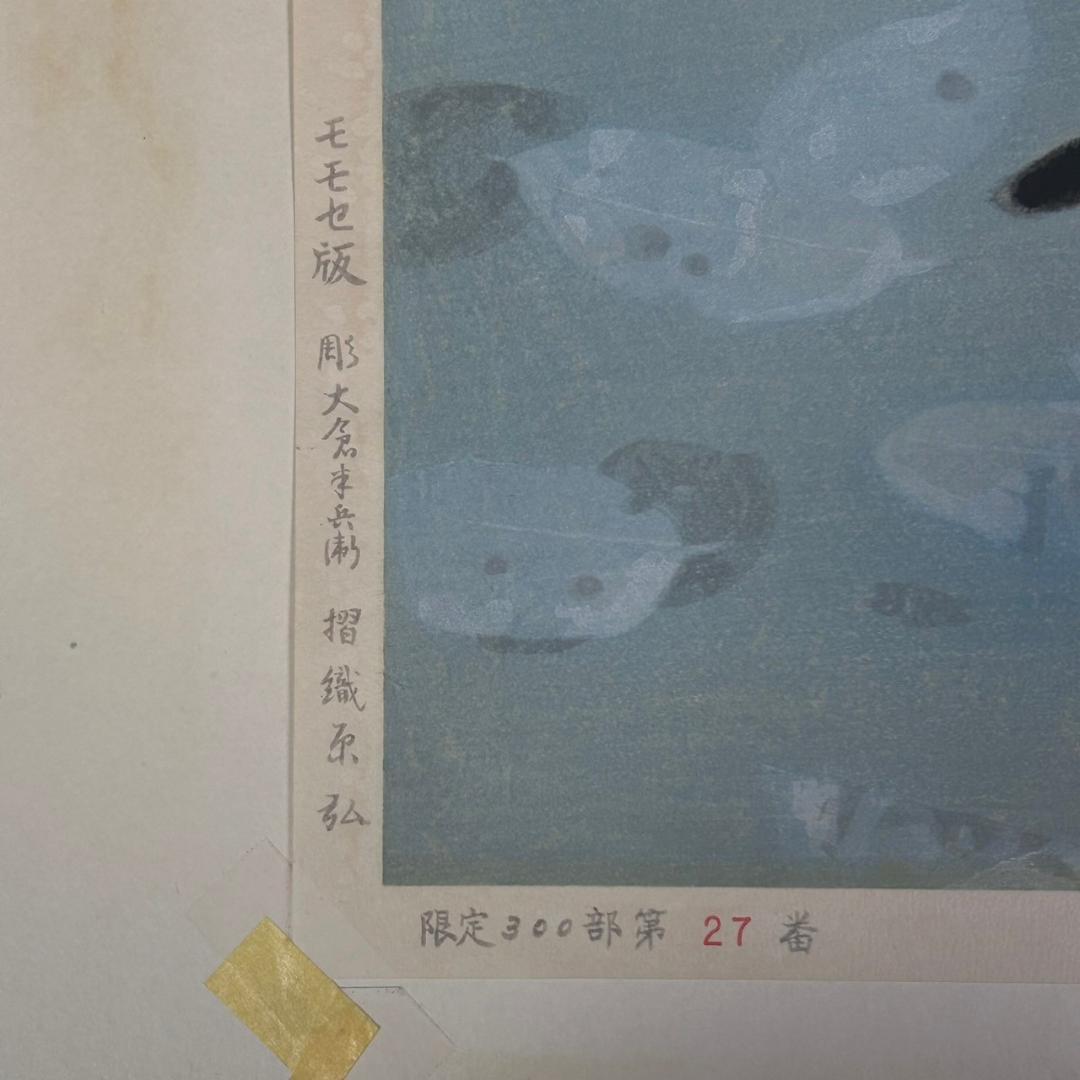 モモセ版 彫大倉半兵衛 摺織原弘
限定300部第 27 番